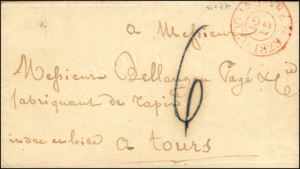 a Messieurs
Messieurs Bellanger Pagé & Cie
fabriquant de tapis
indre et loire a tours
6
22